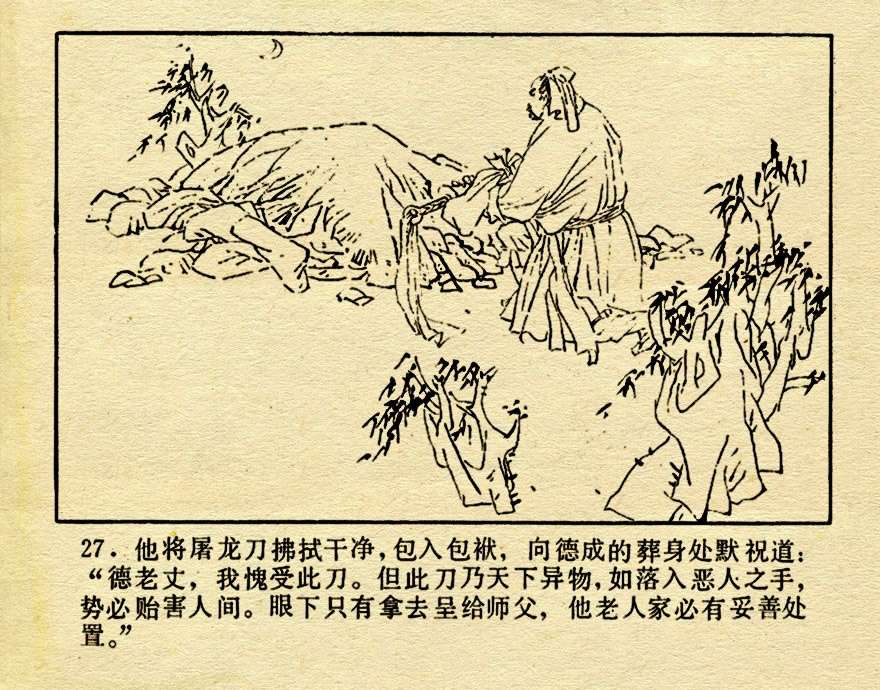 27. 他将屠龙刀拂拭干净,包入包袱, 向德成的葬身处默祝道:
“德老丈, 我愧受此刀。但此刀乃天下异物, 如落入恶人之手,
势必贻害人间。眼下只有拿去呈给师父, 他老人家必有妥善处
置。”